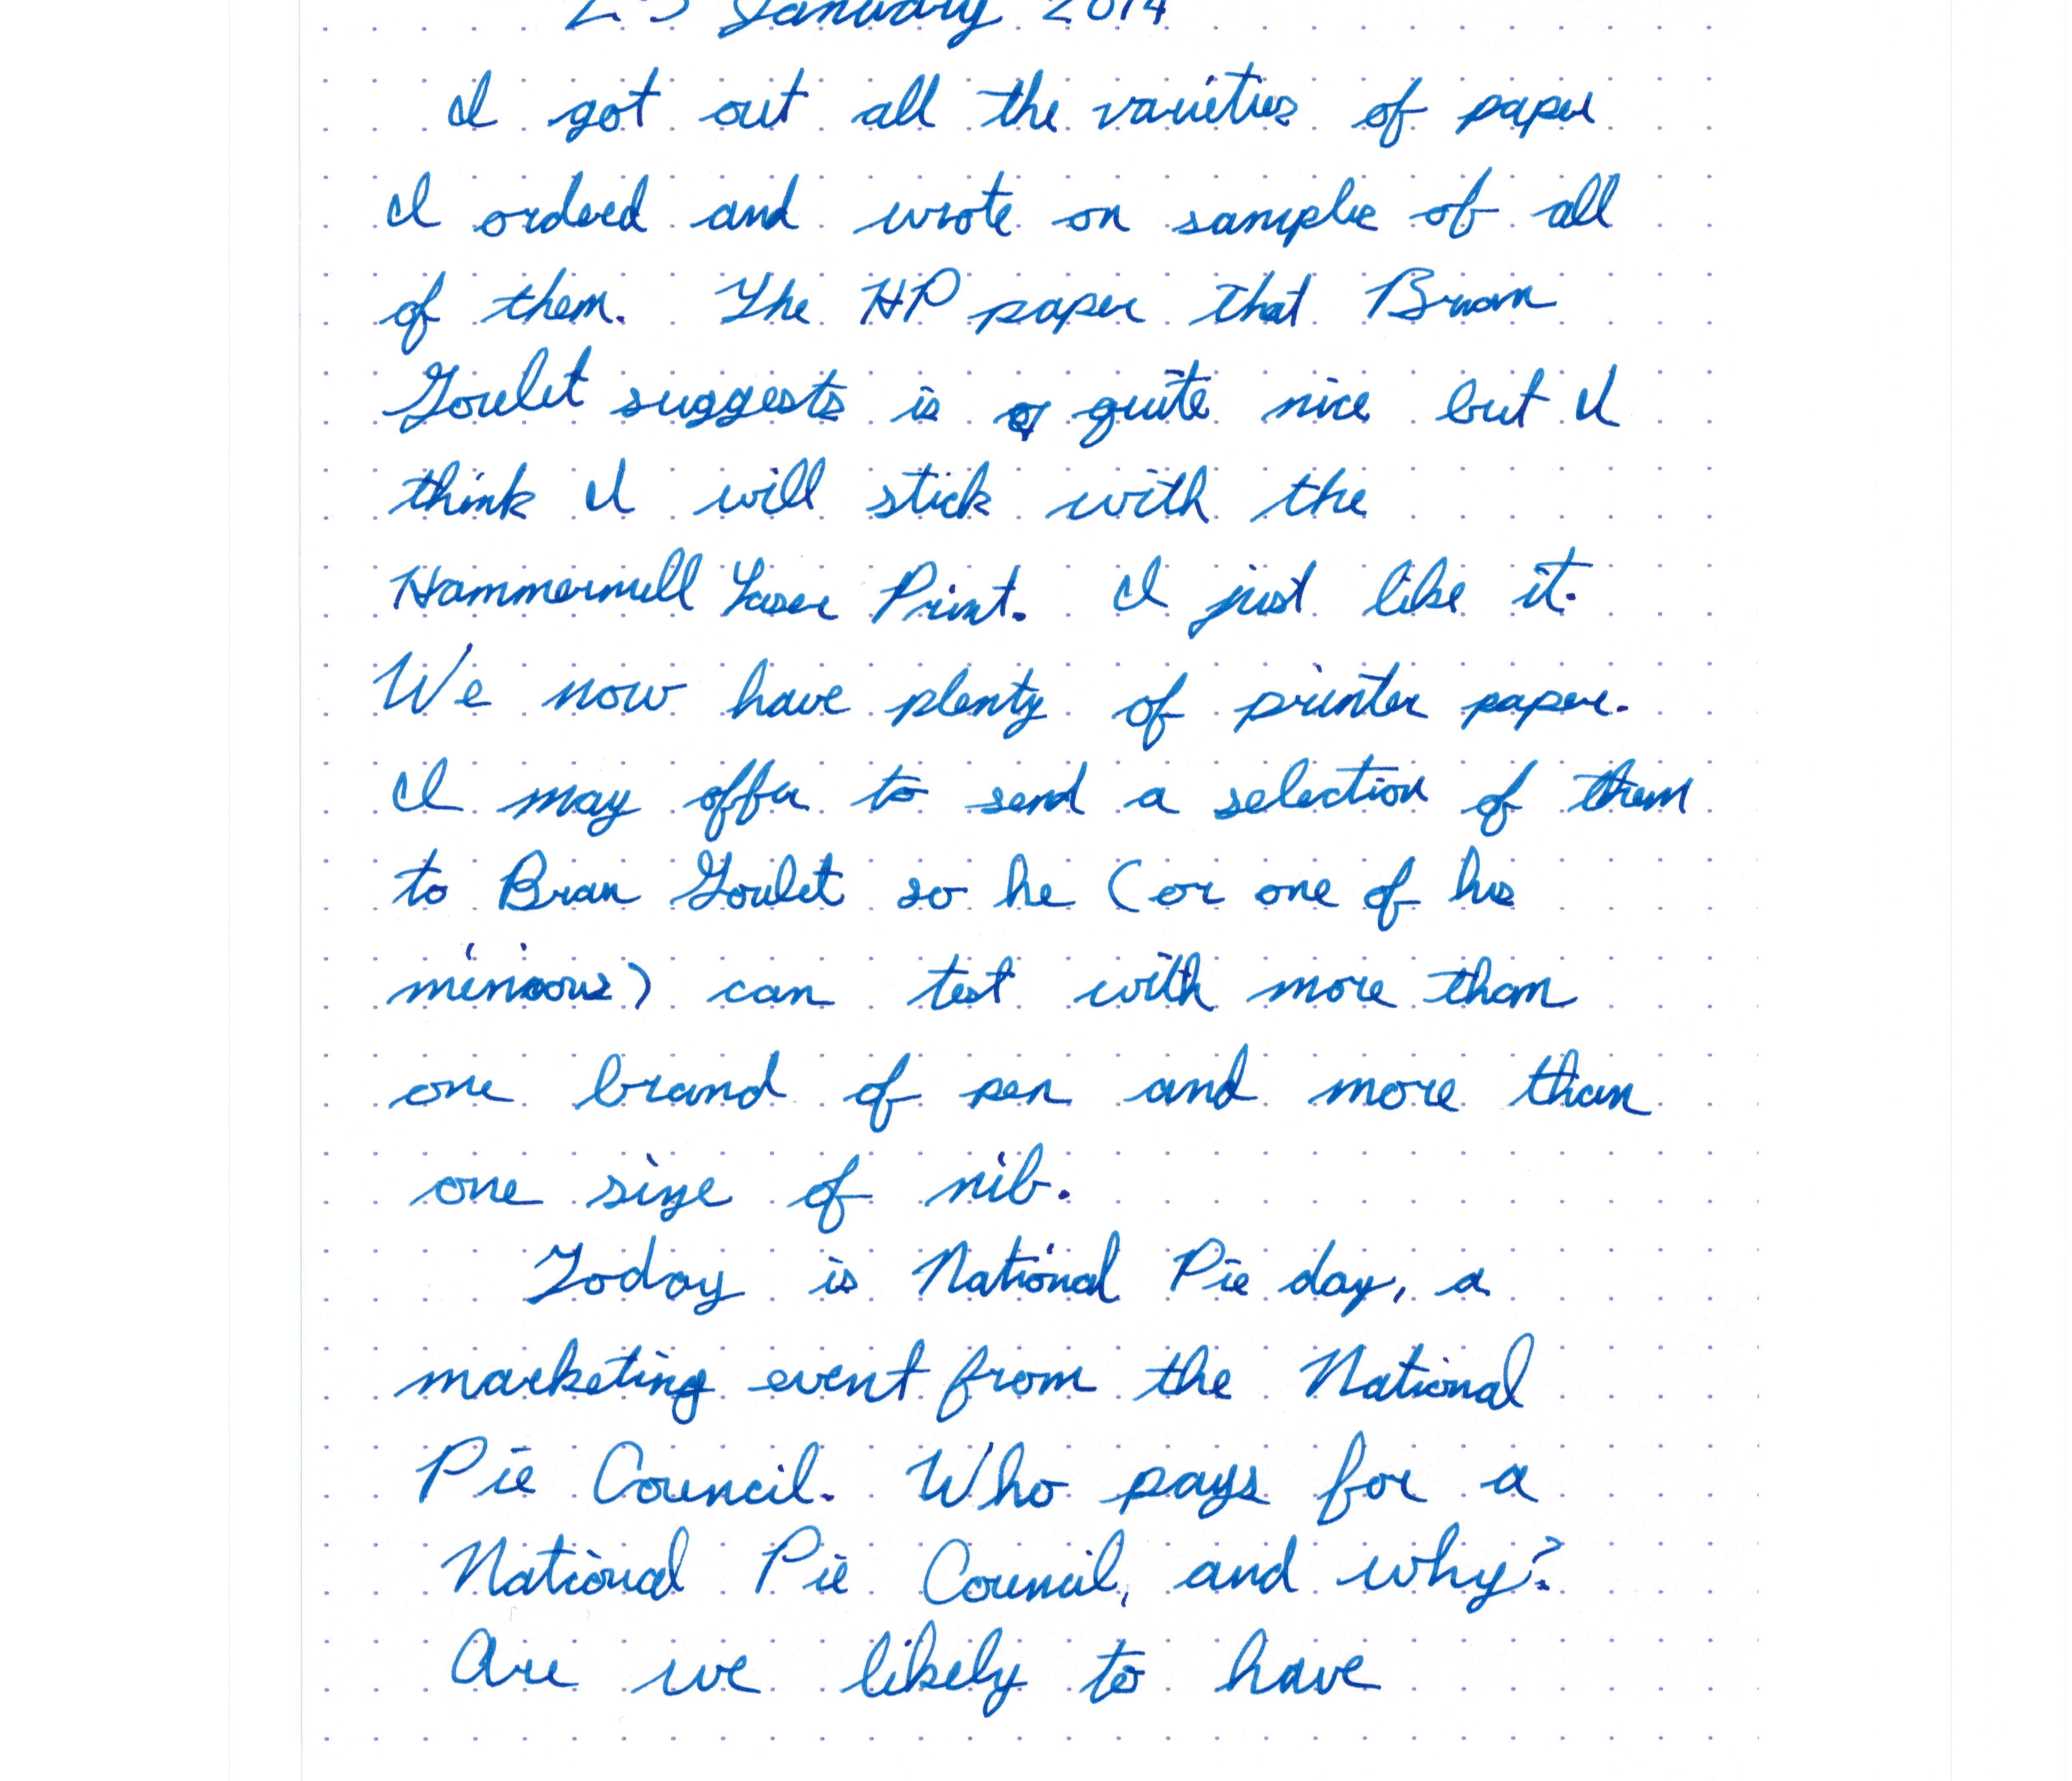 23 January 2014
I got out all the varieties of paper
I ordeed and wrote on sample of all
of them. The HP paper that Brian
Goulet suggests is quite nice but I
think I will stick with the
Hammermill Laser Print. I just like it.
We now have plenty of printer paper.
I may offer to send a selection of them
to Brian Goulet so he (or one of his
) can test with more than
one brand of pen and more than
one size of nib.
Today is National Pie day, a
marketing event from the National
Pie Council. Who pays for a
National Pie Council, and why?
Are we likely to have